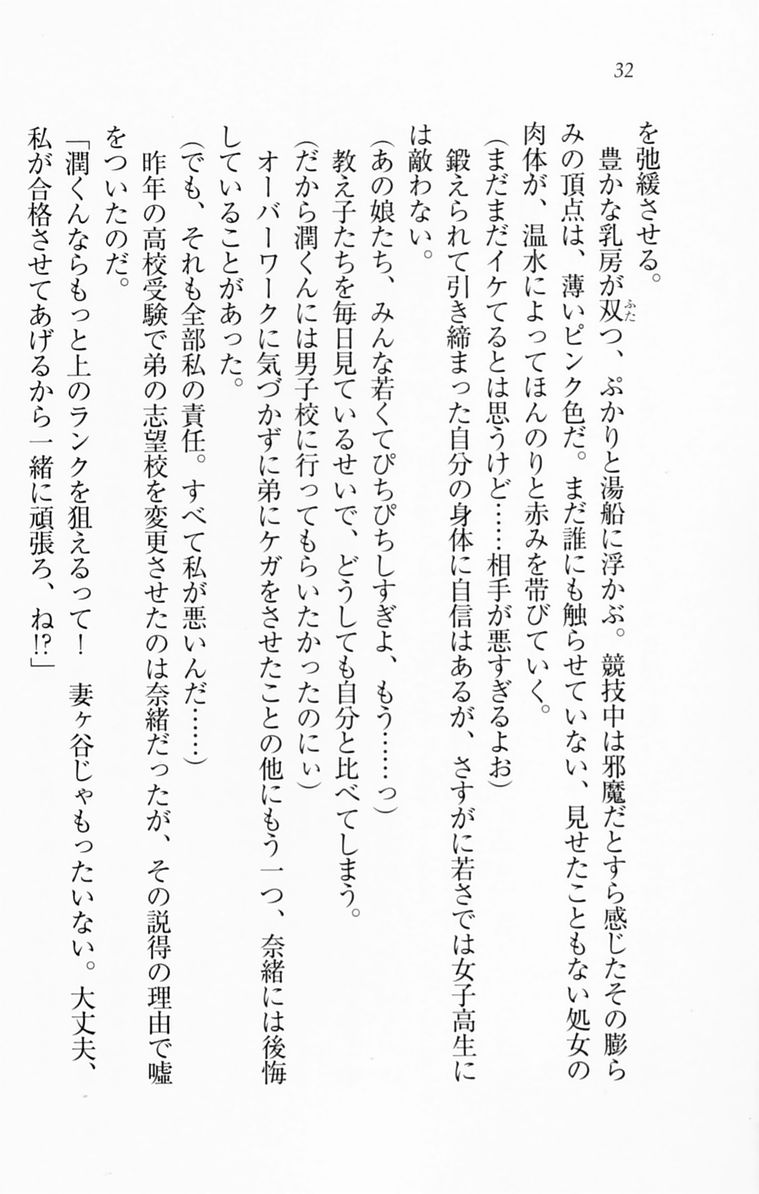 32
を弛緩させる。
　豊かな乳房が双つ、ぷかりと湯船に浮かぶ。競技中は邪魔だとすら感じたその膨ら
ふた
みの頂点は、薄いピンク色だ。まだ誰にも触らせていない、見せたこともない処女の
肉体が、温水によってほんのりと赤みを帯びていく。
（まだまだイケてるとは思うけど……相手が悪すぎるよお）
　鍛えられて引き締まった自分の身体に自信はあるが、さすがに若さでは女子高生に
は敵わない。
（あの娘たち、みんな若くてぴちぴちしすぎよ、もう……っ）
　教え子たちを毎日見ているせいで、どうしても自分と比べてしまう。
（だから潤くんには男子校に行ってもらいたかったのにぃ）
　オーバーワークに気づかずに弟にケガをさせたことの他にもう一つ、奈緒には後悔
していることがあった。
（でも、それも全部私の責任。すべて私が悪いんだ……）
　昨年の高校受験で弟の志望校を変更させたのは奈緒だったが、その説得の理由で嘘
をついたのだ。
「潤くんならもっと上のランクを狙えるって！　妻ヶ谷じゃもったいない。大丈夫、
私が合格させてあげるから一緒に頑張ろ、ね!?」